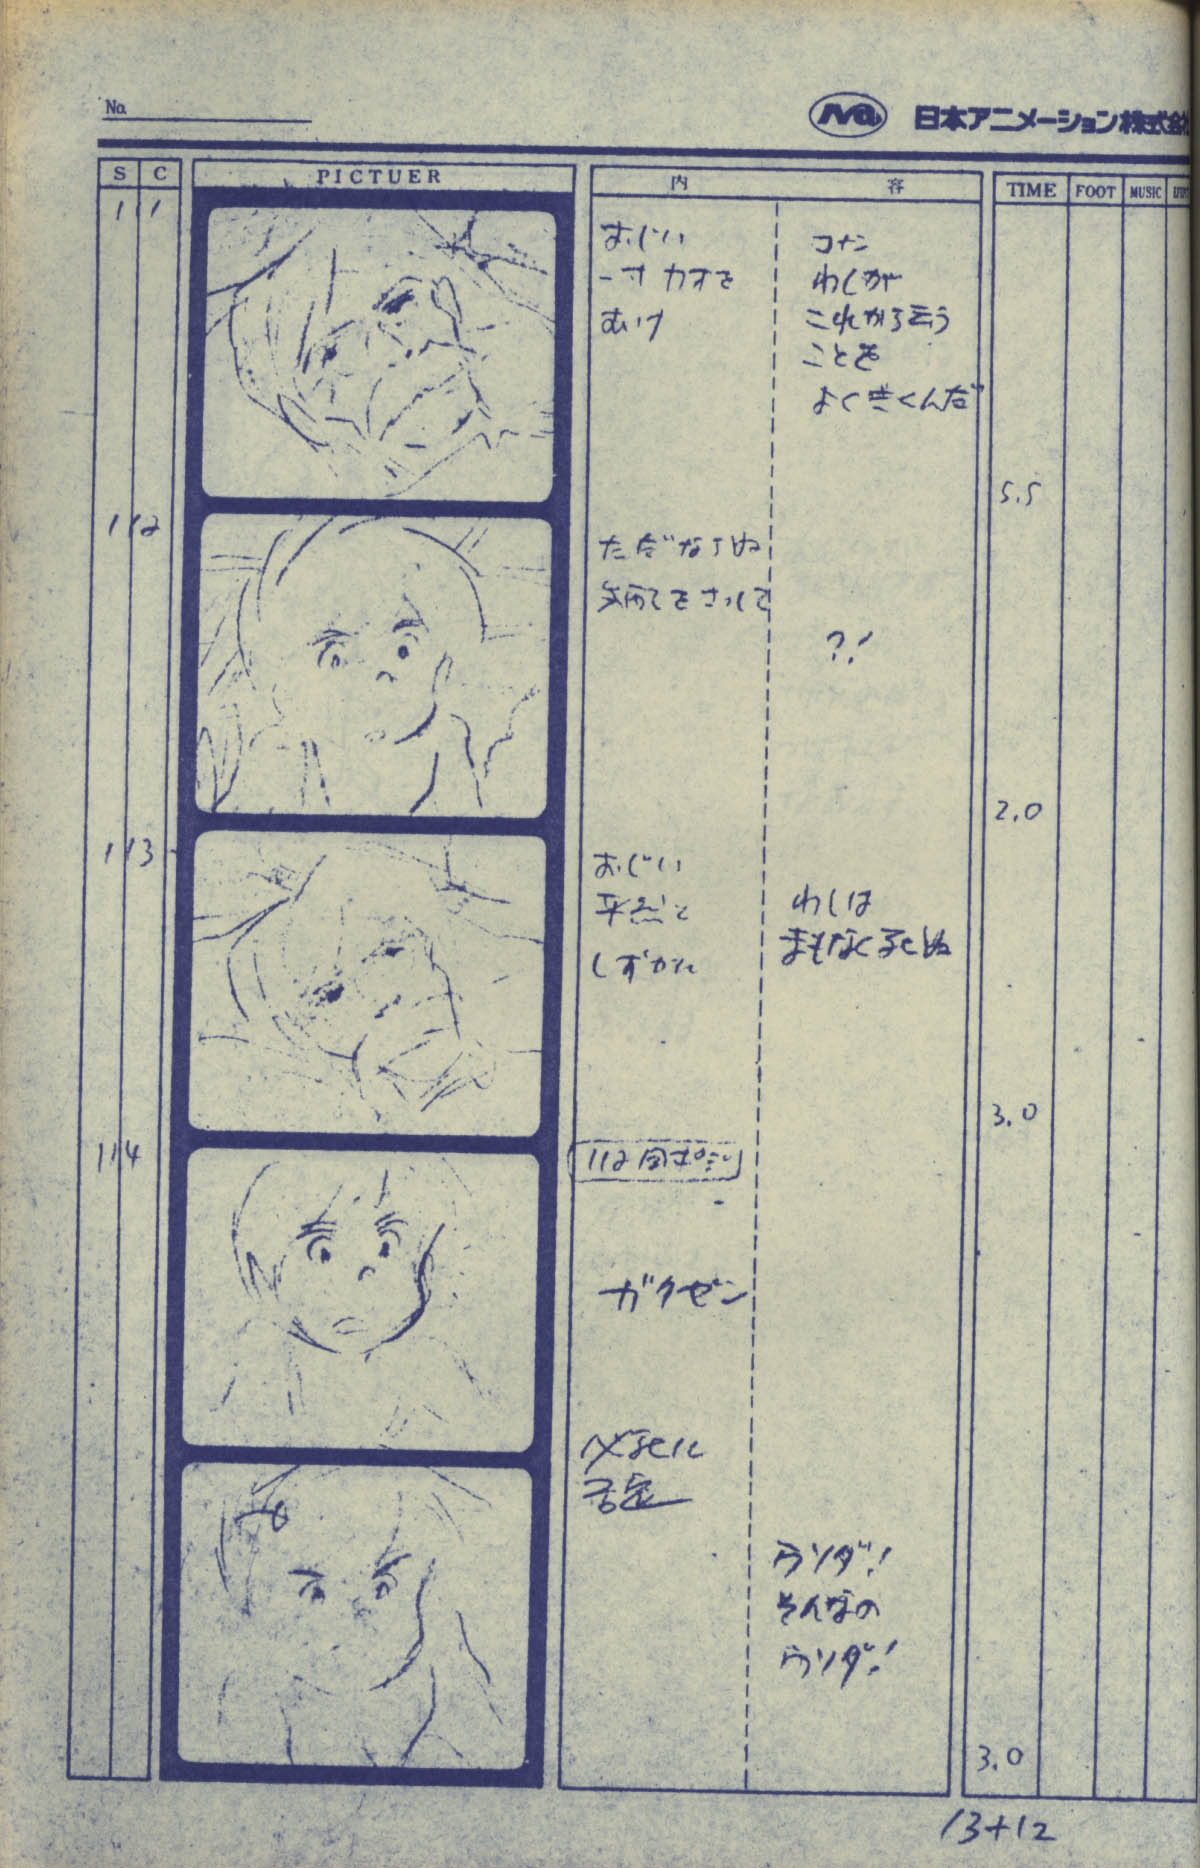 No.
日本アニメーション株式会社
S C PICTUER 内 容 TIME FOOT MUSIC
111
おじい
一寸カオを
むけ
コナン
わしが
これから云う
ことを
よくきくんだ
5.5
112
ただならぬ
気配をさっして
?!
2.0
113
おじい
平然と
しずかに
わしは
まもなく死ぬ
3.0
114
112同ポジ
ガクゼン
必死に
否定
ウソダ!
そんなの
ウソダ!
3.0
13+12